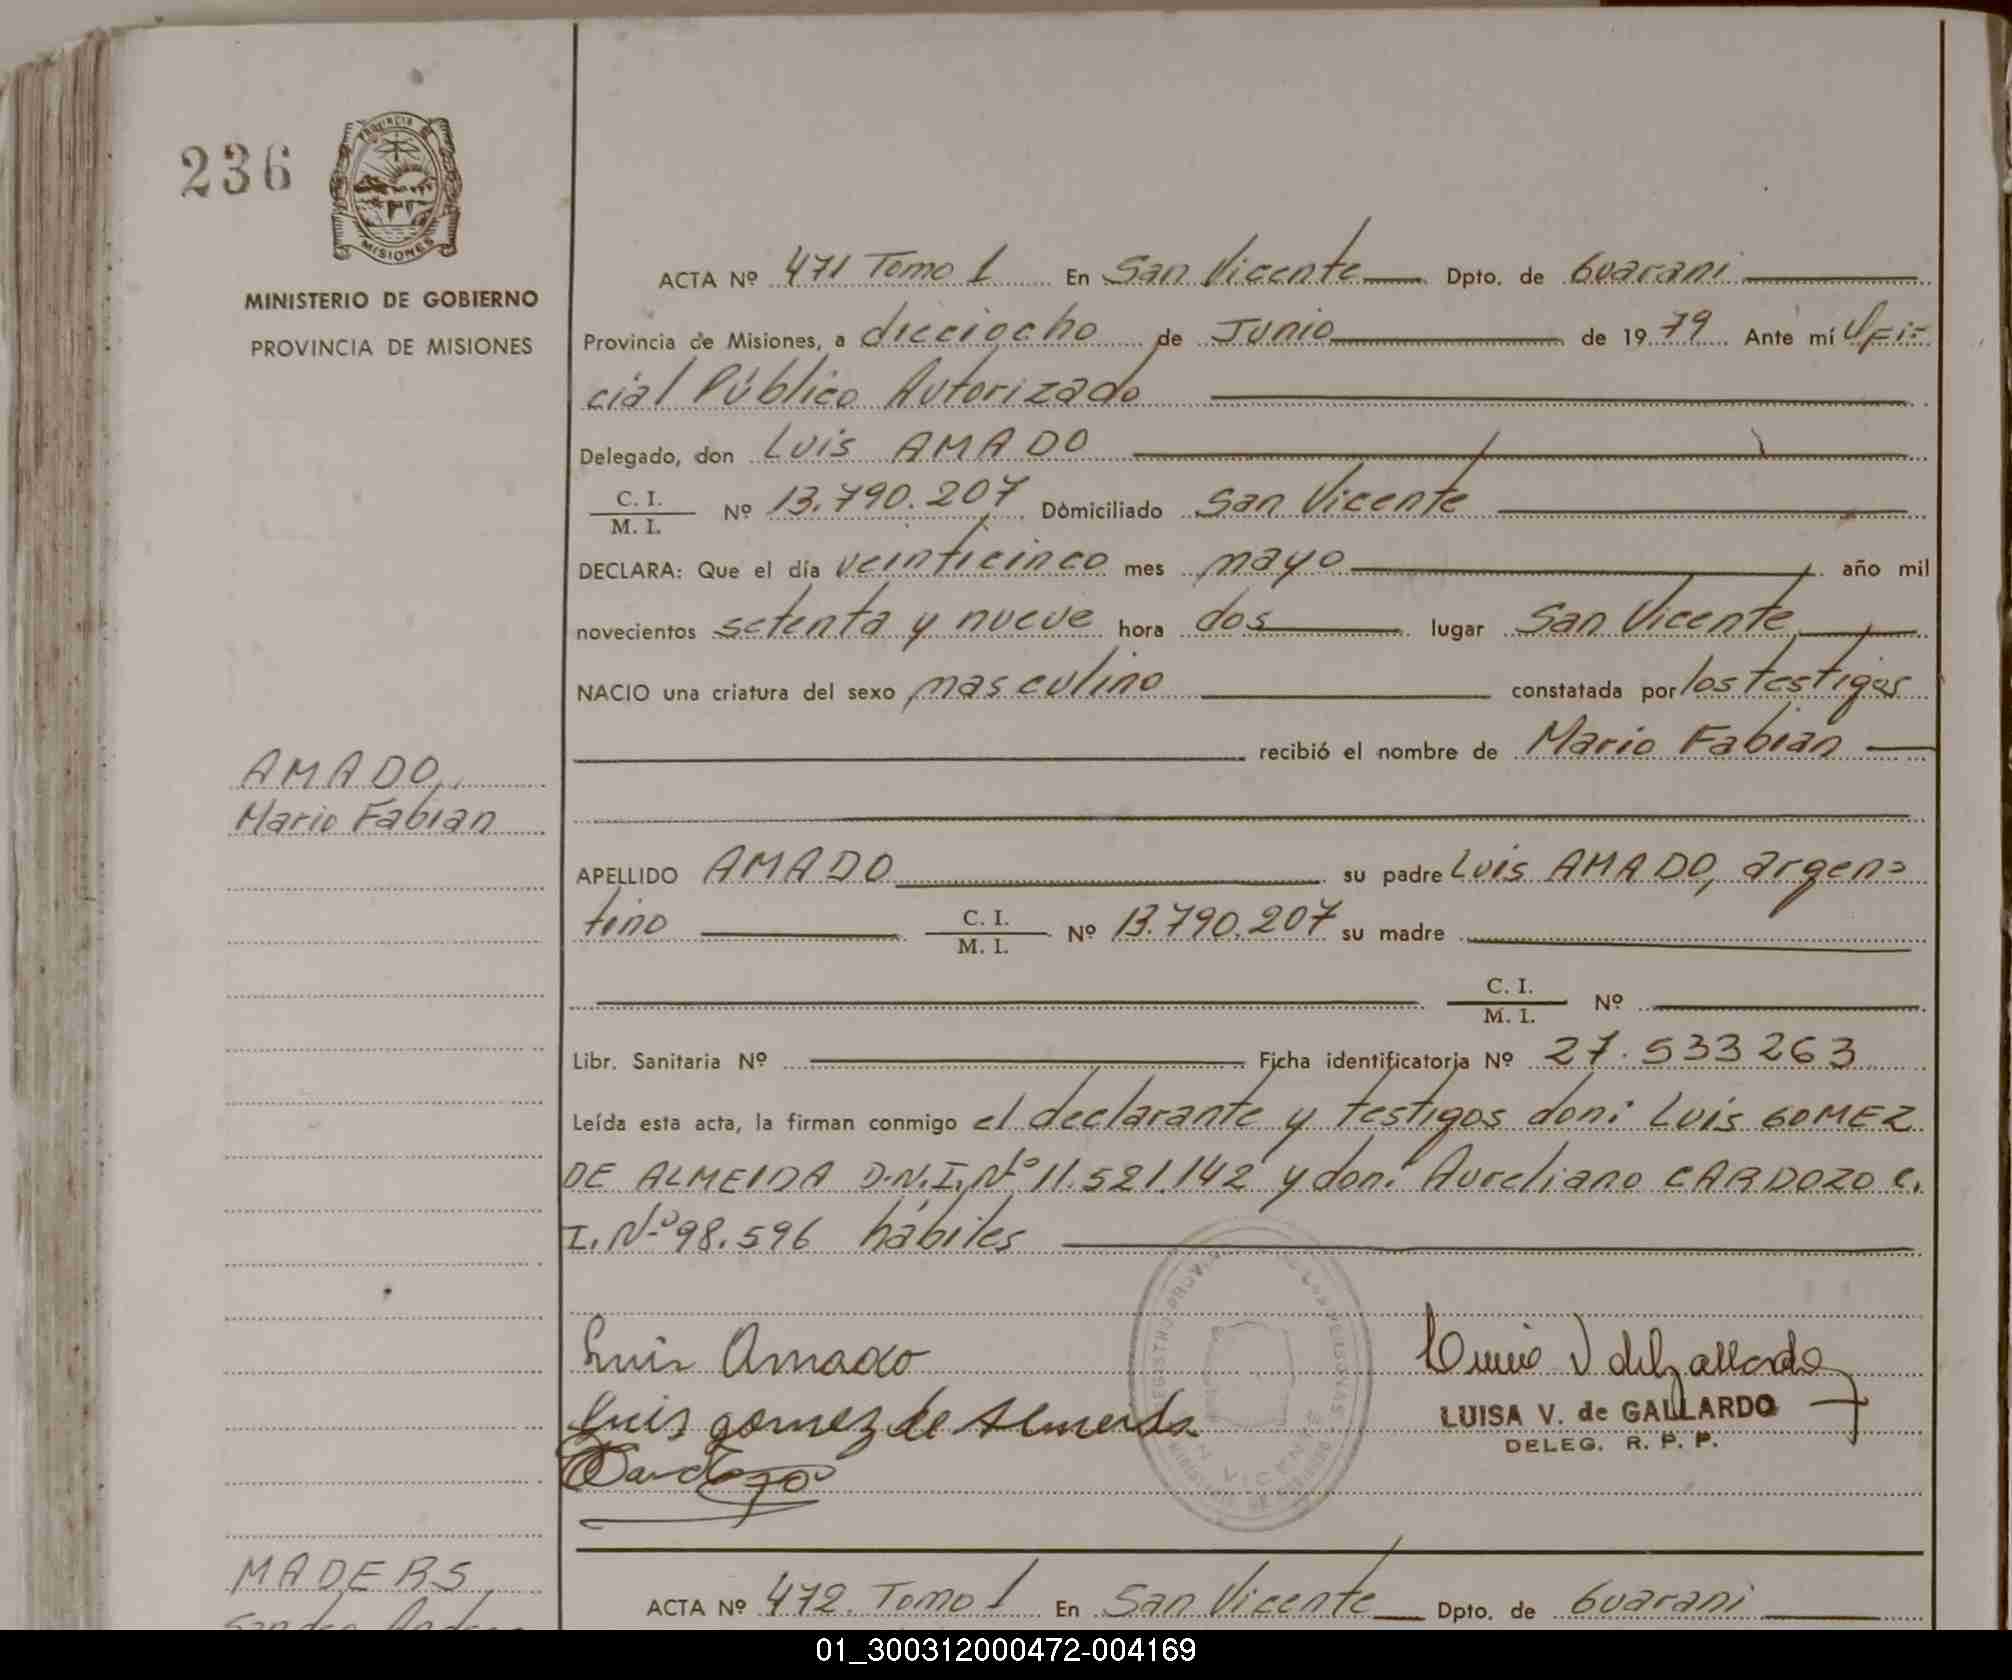 236
PROVINCIA DE
MISIONES
MINISTERIO DE GOBIERNO
PROVINCIA DE MISIONES
ACTA Nº 471 Tomo 1 En San Vicente Dpto. de Guarani
Provincia de Misiones, a dieciocho de Junio de 1979 Ante mí Ofi-
cial Público Autorizado
Delegado, don Luis AMADO
C. I.
M. I. Nº 13.790.207 Domiciliado San Vicente
DECLARA: Que el día veinticinco mes mayo año mil
novecientos setenta y nueve hora dos lugar San Vicente
NACIO una criatura del sexo masculino constatada por los testigos
recibió el nombre de Mario Fabian
AMADO,
Mario Fabian
APELLIDO AMADO su padre Luis AMADO, argen=
tino C. I.
M. I. Nº 13.790.207 su madre
C. I.
M. I. Nº
Libr. Sanitaria Nº Ficha identificatoria Nº 27.533263
Leída esta acta, la firman conmigo el declarante y testigos don: Luis GOMEZ
DE ALMEIDA D.N.I. Nº 11.521.142 y don: Aureliano CARDOZO C.
I. Nº 98.596 hábiles
Luis Amado
Luis gomez de Almeida
Cardozo
LUISA V. de GALLARDO
DELEG. R. P. P.
MADERS
ACTA Nº 472 Tomo 1 En San Vicente Dpto. de Guarani
01_300312000472-004169